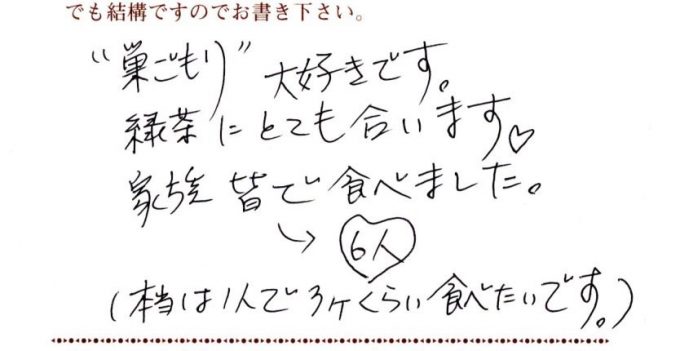 でも結構ですのでお書き下さい。
“巣ごもり”大好きです。
緑茶にとても合います♡
家族皆で食べました。
↳ 6人
(本当は1人で3ケくらい食べたいです。)